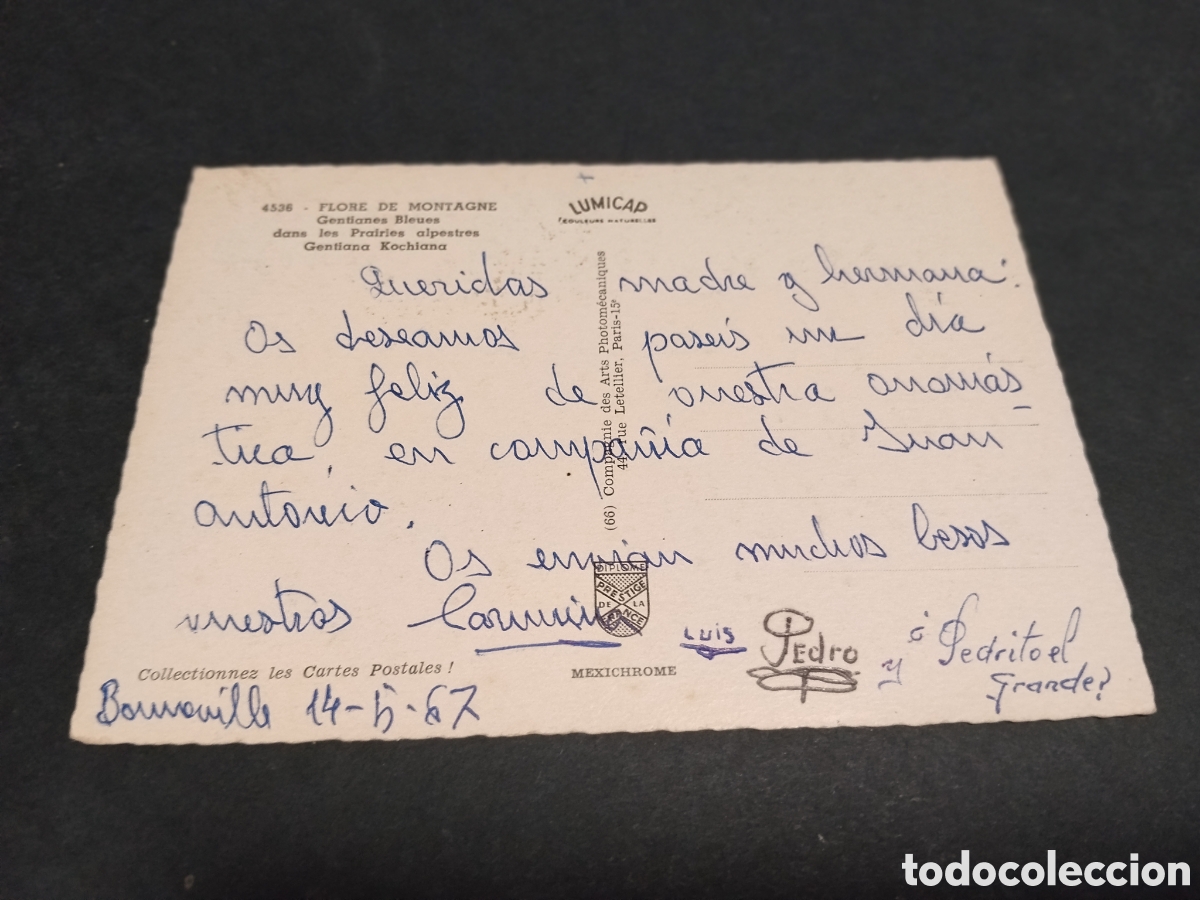 4536 - FLORE DE MONTAGNE
Gentianes Bleues
dans les Prairies alpestres
Gentiana Kochiana
LUMICAP
COULEURS NATURELLES
Queridas madre y hermana:
Os deseamos paseis un día
muy feliz de vuestra onomás-
tica, en compañía de Juan
antonio.
Os envian muchos besos
vuestros Carmina
Luis Pedro y ¿Pedrito el
grande?
(66) Compagnie des Arts Photomécaniques
44, rue Letellier, Paris-15e
DIPLOME
PRESTIGE
DE LA
FRANCE
Collectionnez les Cartes Postales !
MEXICHROME
Bonneville 14-5-67
todocoleccion.net